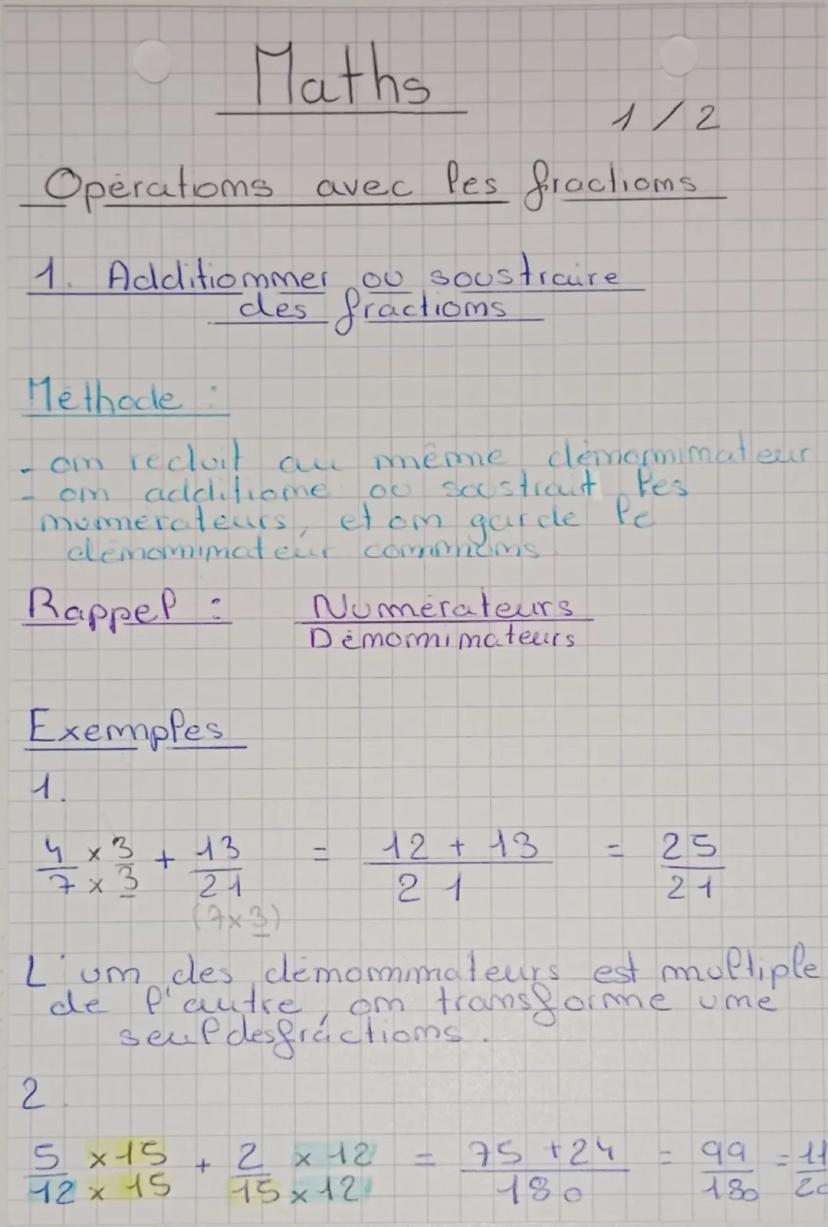 Maths
1/2
Opérations avec les fractions
1. Additionner ou soustraire
des fractions
Méthode :
- on reduit au même dénominateur
- on additione ou soustrait les
numérateurs, et on garde le
dénominateur communs
Rappel : Numérateurs
Dénominateurs
Exemples
1.
4/7 × 3/3 + 13/21 = (12 + 13)/21 = 25/21
(7×3)
L'un des dénominateurs est multiple
de l'autre, on transforme une
seul des fractions.
2.
5/12 ×15/×15 + 2/15 ×12/×12 = (75 + 24)/180 = 99/180 = 11/20